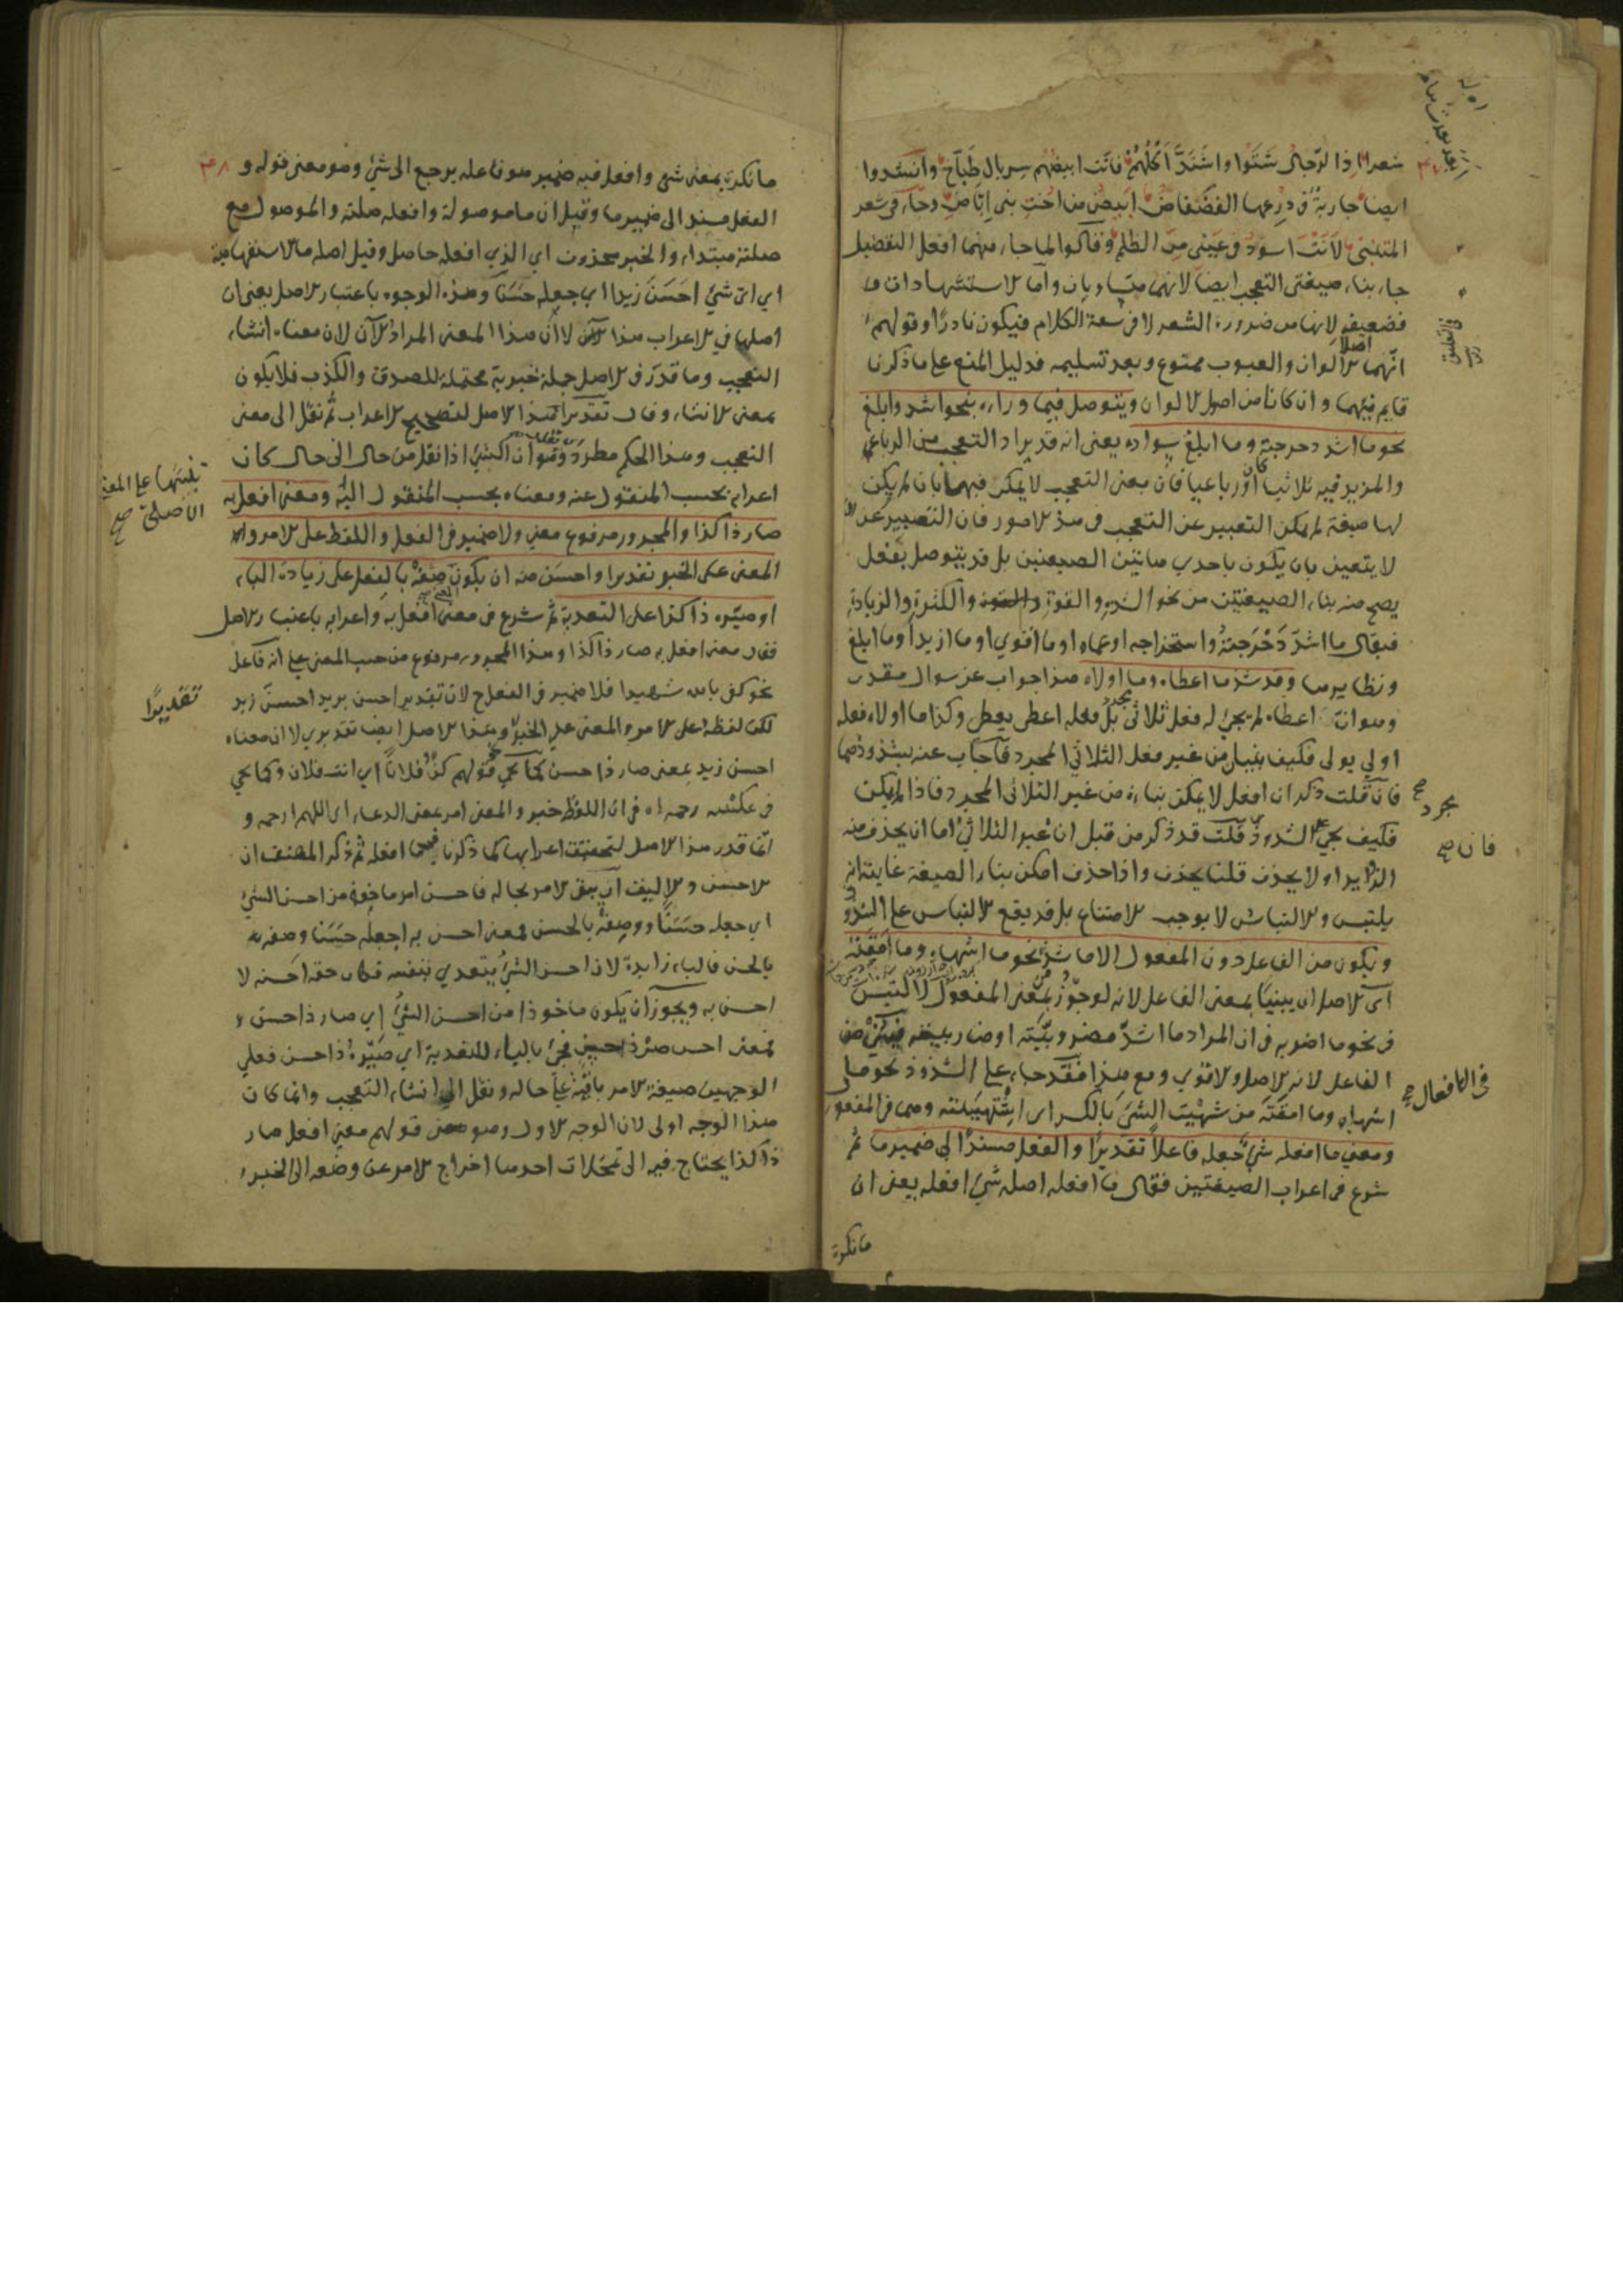 شعر اذا الرّجال شَتَوا واشتَدَّ اَكلُهُمْ فانت ابيضهم سربال طبّاخ وانشدوا
ايضا جارية فى درعها الفضفاض ابيض من اخت بنى اباض وجاء فى شعر
المتنبى لَانتَ اسود فى عينى من الظلم وقالوا لما جاء منهما افعل التفضيل
جاء بناء صيغتى التعجب ايضا لانهما متساويان واما الاستشهادات
فضعيفه لانها من ضرورة الشعر لا فى سعة الكلام فيكون نادرا وقولهم
انهما اصلا الالوان والعيوب ممنوع وبعد تسليمه فدليل المنع على ما ذكرنا
قايم فيهما وان كانا من اصول الالوان ويتوصل فيما وراءه بنحو اشد وابلغ
نحو ما اشد دحرجته وما ابلغ سواده يعنى انه قد يراد التعجب من الرباعى
والمزيد فيه ثلاثيا كان او رباعيا فان معنى التعجب لا يمكن فيهما بان لم يكن
لها صيغة لم يمكن التعبير عن التعجب فى هذه الامور فان التعبير عن
لا يتعين بان يكون باحدى هاتين الصيغتين بل قد يتوصل بفعل
يصح منه بناء الصيغتين من نحو الشدة والقوة والكثرة والزيادة
فيقال ما اشدّ دَحْرَجتهُ واستخراجه او عماه او ما اقوى او ما ازيد او ما ابلغ
ونظايرها وقد شذ ما اعطاه وما اولاه هذا جواب عن سوال مقدر
وهو انّ اعطاه لم يجئ له فعل ثلاثى مجرد بل فعله اعطى يعطى وكذا ما اولاه فعله
اولى يولى فكيف يبنيان من غير فعل الثلاثى المجرد فاجاب عنه بشذوذهما
فان قلت ذكر ان افعل لا يمكن بناءه من غير الثلاثى المجرد فاذا لم يكن
فكيف يجئ على الشذوذ قلت قد ذكر من قبل ان غير الثلاثى اما ان يحذف منه
الزايد او لا يحذف قلنا يحذف واذا حذف امكن بناء الصيغة غايته انه
يلتبس والالتباس لا يوجب الامتناع بل قد يقع الالتباس على الشذوذ
ويكون من الفاعل دون المفعول الا ما شذ نحو ما اشهاه وما امقته
اى الاصل ان يبنيا بمعنى الفاعل لانه لو جوّز بمعنى المفعول لالتبس
فى نحو ما اضربه فى ان المراد ما اشدّ مضروبيّته او ضاربيته
الفاعل لانه الاصل والاقوى ومع هذا فقد جاء على الشذوذ نحو ما
اشهاه وما امقته من شهيت الشئ بالكسر اى اشتهيته وهما فى المفعول
ومعنى ما افعله شئ جعله فاعلا تقديرًا والفعل مسندًا الى ضمير ما ثم
شرع فى اعراب الصيغتين فقال ما افعله اصله شئ افعله يعنى ان
ما نكرة
مجرد صح
فان صح
فى الافعال صح
ما نكرة بمعنى شئ وافعل فيه ضمير هو فاعله يرجع الى شئ وهو معنى قوله و ٣٨
الفعل مسند الى ضمير ما وقيل ان ما موصولة وافعله صلته والموصول مع
صلته مبتداء والخبر محذوف اى الذى افعله حاصل وقيل اصله ما الاستفهامية
اى اىّ شئ احسَنَ زيدا اى جعله حَسَنًا وهذه الوجوه باعتبار الاصل يعنى ان
اصلها فى الاعراب هذا الان لا ان هذا المعنى المراد الآن لان معناه انشاء
التعجب وما قدّر فى الاصل جملة خبرية محتملة للصدق والكذب فلا يكون
بمعنى الانشاء وقال تقديرا هذا الاصل لتصحيح الاعراب ثم نقل الى معنى
التعجب وهذا الحكم مطرد وهو ان الشئ اذا نقل من حال الى حال كان
اعرابه بحسب المنقول عنه ومعناه بحسب المنقول اليه ومعنى افعل به
صار ذا كذا والمجرور مرفوع معنى ولا ضمير فى الفعل واللفظ على الامر و
المعنى على الخبر تقديرا واحسن منه ان يكون صِفْهُ بالفعل على زيادة الباء
او صيّره ذا كذا على التعدية ثم شرع فى معنى افعل به واعرابه باعتبار الاصل
فقال معنى افعل به صار ذا كذا وهذا المجرور مرفوع من حيث المعنى على انه فاعل
نحو كفى بالله شهيدا فلا ضمير فى الفعل ح لان تقدير احسن بزيد احسنَ زيد
لكن لفظه على الامر والمعنى على الخبر وهذا الاصل ايضا تقديرى لا ان معناه
احسن زيد بمعنى صار ذا حسن كما يجئ قولهم كن فلانًا اى انت فلان وكما يجئ
فى عكسه رحمه الله فى ان اللفظ خبر والمعنى امر بمعنى الدعاء اى اللهم ارحمه و
انما قدر هذا الاصل لتحقيق اعرابها كما ذكرنا فى ما افعله ثم ذكر المصنف ان
الاحسن والاليق ان يبقى الامر بحاله فاحسن امر ماخوذ من احسن الشئ
اى جعله حسَنًا ووصفه بالحسن فمعنى احسن به اجعله حَسَنا وصفه به
بالحسن فالباء زايدة لان احسن الشئ يتعدى بنفسه فكان حقه احسنه لا
احسن به ويجوز ان يكون ماخوذا من احسن الشئ اى صار ذا حسن و
فمعنى احسن صر ذا حسن فجئ بالباء للتعدية اى صَيّرهُ ذا حسن فعلى
الوجهين صيغة الامر باقية على حاله ونقل الى انشاء التعجب وانما كان
هذا الوجه اولى لان الوجه الاول وهو قولهم معنى افعل صار
ذا كذا يحتاج فيه الى تمحلات احدها اخراج الامر عن وضعه الى الخبر
الاصلى صح
تقديرًا